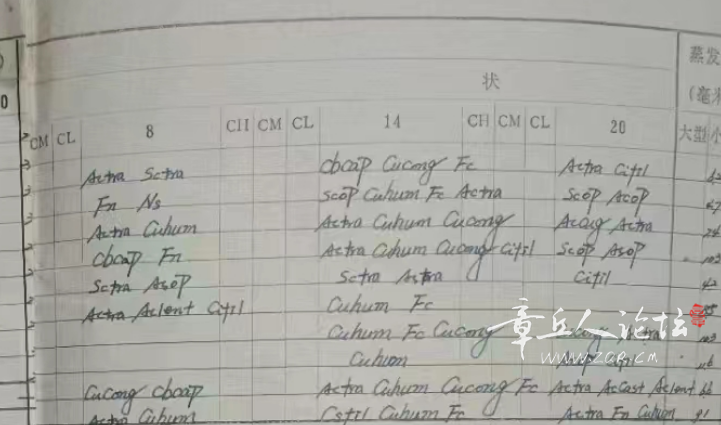 状 蒸发
(毫米
CM CL 8 CH CM CL 14 CH CM CL 20 大型 小
Actra Sctra Cbcap Cucong Fc Actra Cifil
Fn Ns Scop Cuhum Fc Actra Scop Acop
Actra Cuhum Actra Cuhum Cucong Acaug Actra
Cbcap Fn Actra Cuhum Cucong Cifil Scop Asop
Sctra Asop Sctra Astra Cifil
Actra Aclent Cifil Cuhum Fc
Cuhum Fc Cucong
Cuhum
Cucong Cbcap Actra Cuhum Cucong Fc Actra AcCast Aclent
Actra Cuhum Csfil Cuhum Fc Actra Fn Cuhum 91
章丘人论坛
www.zqr.cm